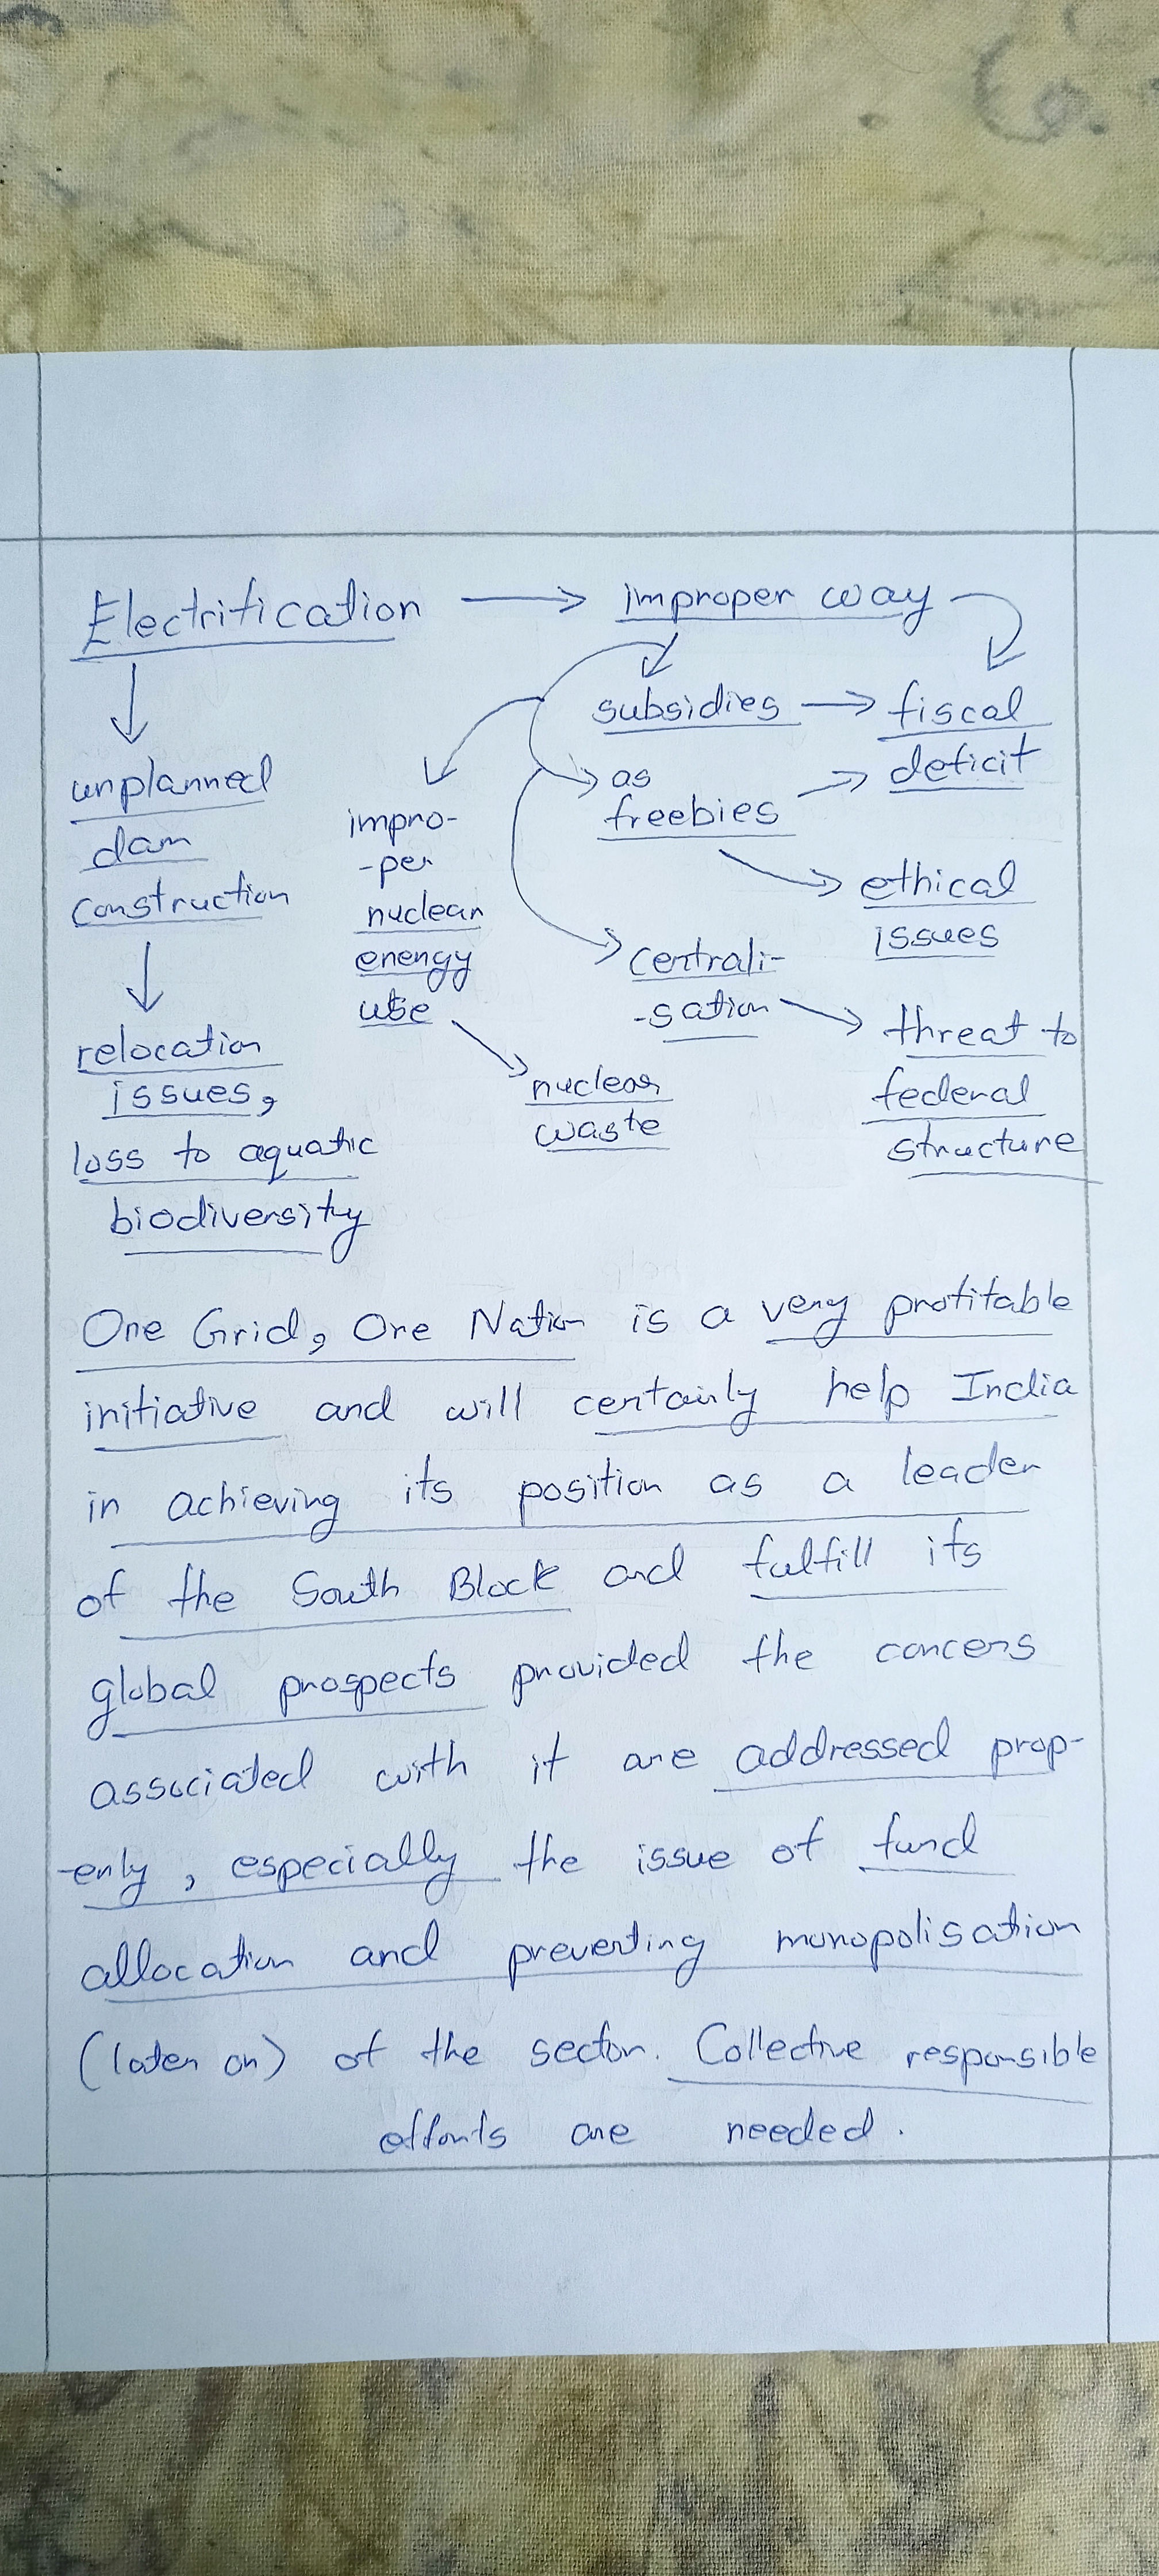 Electrification → improper way
subsidies → fiscal
deficit
as
freebies
ethical
issues
centrali-
-sation
threat to
federal
structure
impro-
-per
nuclear
energy
use
nuclear
waste
unplanned
dam
construction
relocation
issues,
loss to aquatic
biodiversity
One Grid, One Nation is a very profitable
initiative and will certainly help India
in achieving its position as a leader
of the South Block and fulfill its
global prospects provided the concers
associated with it are addressed prop-
-erly, especially the issue of fund
allocation and preventing monopolisation
(later on) of the sector. Collective responsible
efforts are needed.